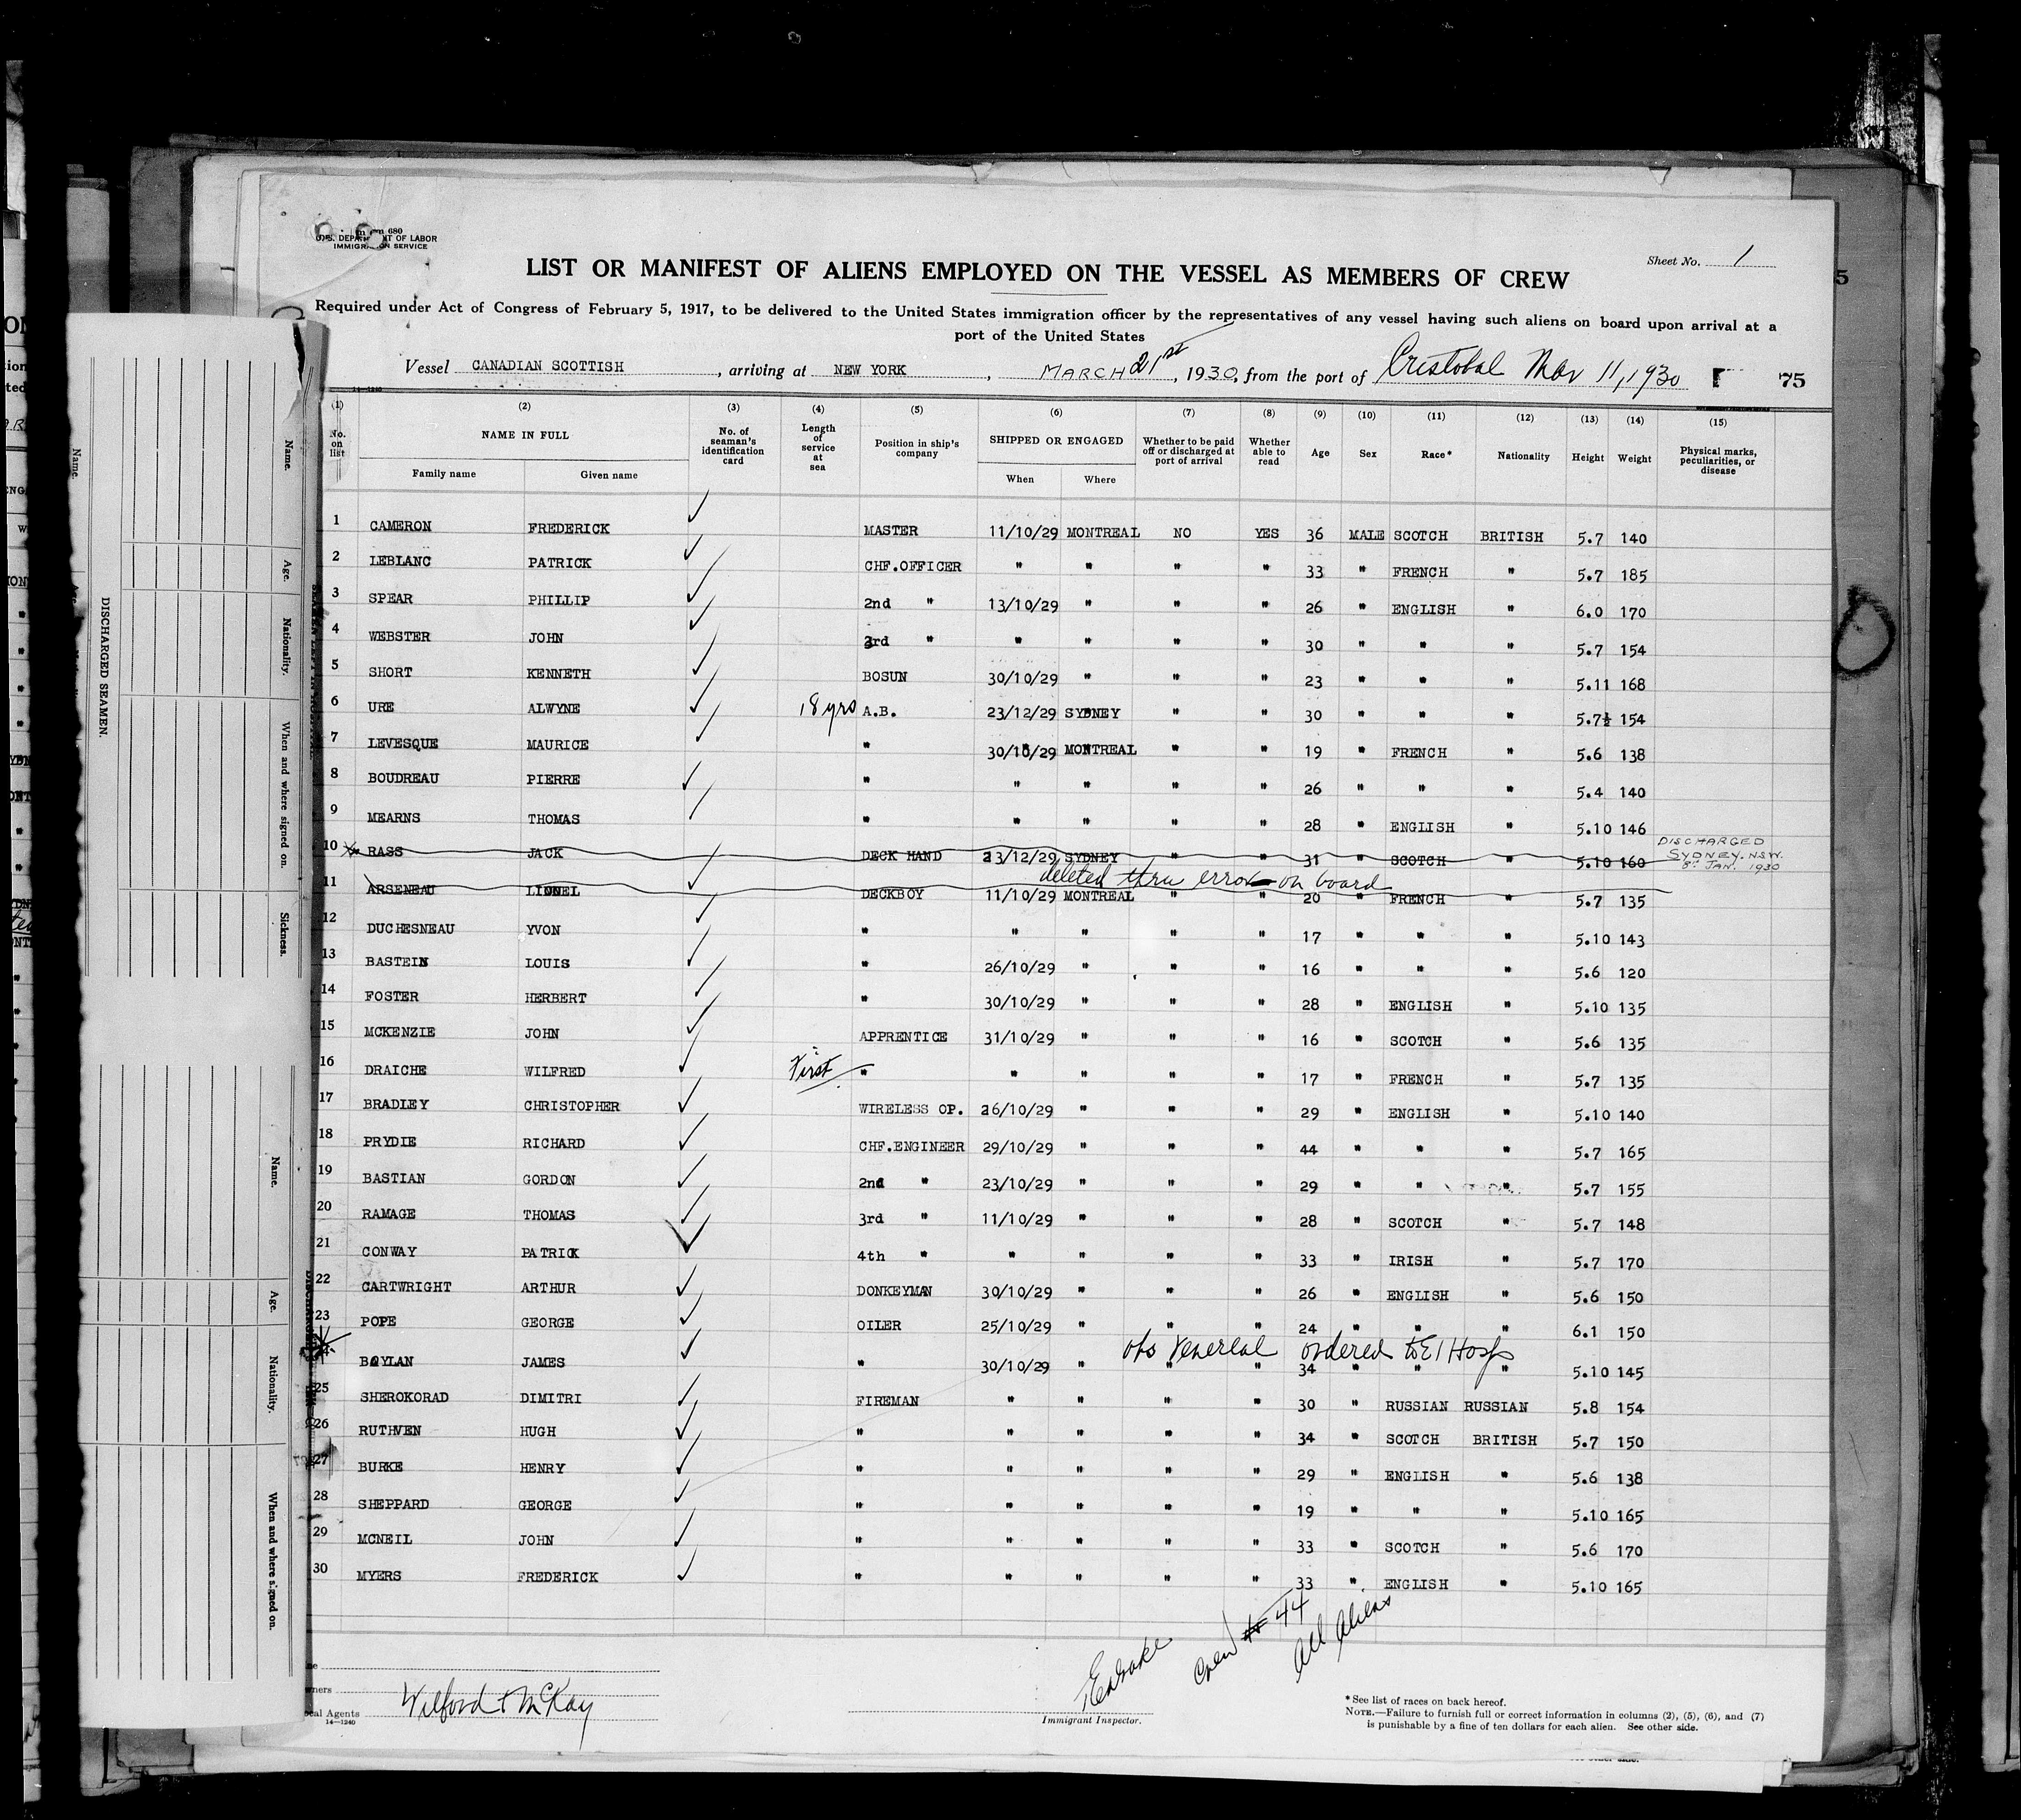 U.S. DEPARTMENT OF LABOR
IMMIGRATION SERVICE
Sheet No. 1
LIST OR MANIFEST OF ALIENS EMPLOYED ON THE VESSEL AS MEMBERS OF CREW
Required under Act of Congress of February 5, 1917, to be delivered to the United States immigration officer by the representatives of any vessel having such aliens on board upon arrival at a
port of the United States
Vessel CANADIAN SCOTTISH, arriving at NEW YORK, MARCH 21st, 1930, from the port of Cristobal Mar 11, 1930 75
14—1240
(1) (2) (3) (4) (5) (6) (7) (8) (9) (10) (11) (12) (13) (14) (15)
No. on list NAME IN FULL Family name Given name No. of seaman's identification card Length of service at sea Position in ship's company SHIPPED OR ENGAGED When Where Whether to be paid off or discharged at port of arrival Whether able to read Age Sex Race* Nationality Height Weight Physical marks, peculiarities, or disease
1 CAMERON FREDERICK MASTER 11/10/29 MONTREAL NO YES 36 MALE SCOTCH BRITISH 5.7 140
2 LEBLANC PATRICK CHF.OFFICER " " " " 33 " FRENCH " 5.7 185
3 SPEAR PHILLIP 2nd " 13/10/29 " " " 26 " ENGLISH " 6.0 170
4 WEBSTER JOHN 3rd " " " " " 30 " " " 5.7 154
5 SHORT KENNETH BOSUN 30/10/29 " " " 23 " " " 5.11 168
6 URE ALWYNE 18 yrs A.B. 23/12/29 SYDNEY " " 30 " " " 5.7½ 154
7 LEVESQUE MAURICE " 30/10/29 MONTREAL " " 19 " FRENCH " 5.6 138
8 BOUDREAU PIERRE " " " " " 26 " " " 5.4 140
9 MEARNS THOMAS " " " " " 28 " ENGLISH " 5.10 146
10 RASS JACK DECK HAND 23/12/29 SYDNEY " " 31 " SCOTCH " 5.10 160 DISCHARGED SYDNEY. N.S.W. 8th JAN. 1930
deleted thru error on board
11 ARSENEAU LIONEL DECKBOY 11/10/29 MONTREAL " " 20 " FRENCH " 5.7 135
12 DUCHESNEAU YVON " " " " " 17 " " " 5.10 143
13 BASTEIN LOUIS " 26/10/29 " " " 16 " " " 5.6 120
14 FOSTER HERBERT " 30/10/29 " " " 28 " ENGLISH " 5.10 135
15 MCKENZIE JOHN APPRENTICE 31/10/29 " " " 16 " SCOTCH " 5.6 135
16 DRAICHE WILFRED First " " " " " 17 " FRENCH " 5.7 135
17 BRADLEY CHRISTOPHER WIRELESS OP. 26/10/29 " " " 29 " ENGLISH " 5.10 140
18 PRYDIE RICHARD CHF.ENGINEER 29/10/29 " " " 44 " " " 5.7 165
19 BASTIAN GORDON 2nd " 23/10/29 " " " 29 " " " 5.7 155
20 RAMAGE THOMAS 3rd " 11/10/29 " " " 28 " SCOTCH " 5.7 148
21 CONWAY PATRICK 4th " " " " " 33 " IRISH " 5.7 170
22 CARTWRIGHT ARTHUR DONKEYMAN 30/10/29 " " " 26 " ENGLISH " 5.6 150
23 POPE GEORGE OILER 25/10/29 " " " 24 " " " 6.1 150
venereal ordered to E I Hosp
24 BOYLAN JAMES " 30/10/29 " " " 34 " " " 5.10 145
25 SHEROKORAD DIMITRI FIREMAN " " " " 30 " RUSSIAN RUSSIAN 5.8 154
26 RUTHVEN HUGH " " " " " 34 " SCOTCH BRITISH 5.7 150
27 BURKE HENRY " " " " " 29 " ENGLISH " 5.6 138
28 SHEPPARD GEORGE " " " " " 19 " " " 5.10 165
29 MCNEIL JOHN " " " " " 33 " SCOTCH " 5.6 170
30 MYERS FREDERICK " " " " " 33 " ENGLISH " 5.10 165
Crew 44
All Aliens
Local Agents Wilford & McKay
14—1240
Immigrant Inspector.
* See list of races on back hereof.
NOTE.—Failure to furnish full or correct information in columns (2), (5), (6), and (7)
is punishable by a fine of ten dollars for each alien. See other side.
DISCHARGED SEAMEN.
Name.
Age.
Nationality.
When and where signed on.
Sickness.
Name.
Age.
Nationality.
When and where signed on.